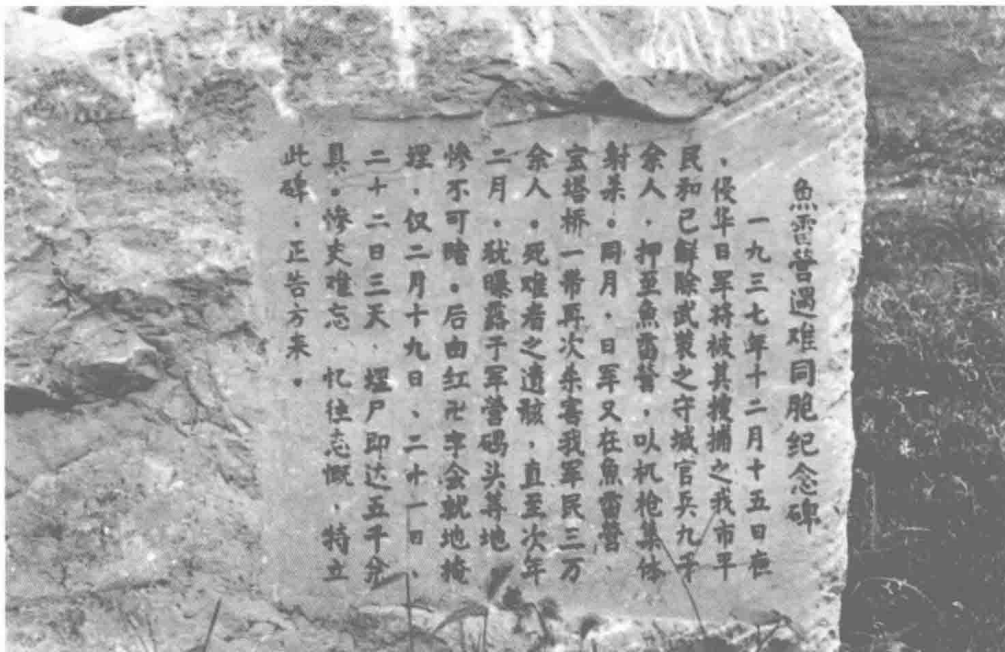 魚雷营遇难同胞纪念碑
一九三七年十二月十五日夜
、侵华日军将被其搜捕之我市平
民和已解除武装之守城官兵九千
余人，押至魚雷营，以机枪集体
射杀。同月，日军又在魚雷营、
宝塔桥一带再次杀害我军民三万
余人。死难者之遗骸，直至次年
二月，犹曝露于军营码头等地，
惨不可睹。后由红卍字会就地掩
埋，仅二月十九日、二十一日、
二十二日三天，埋尸即达五千余
具。惨史难忘，忆往志慨，特立
此碑，正告方来。